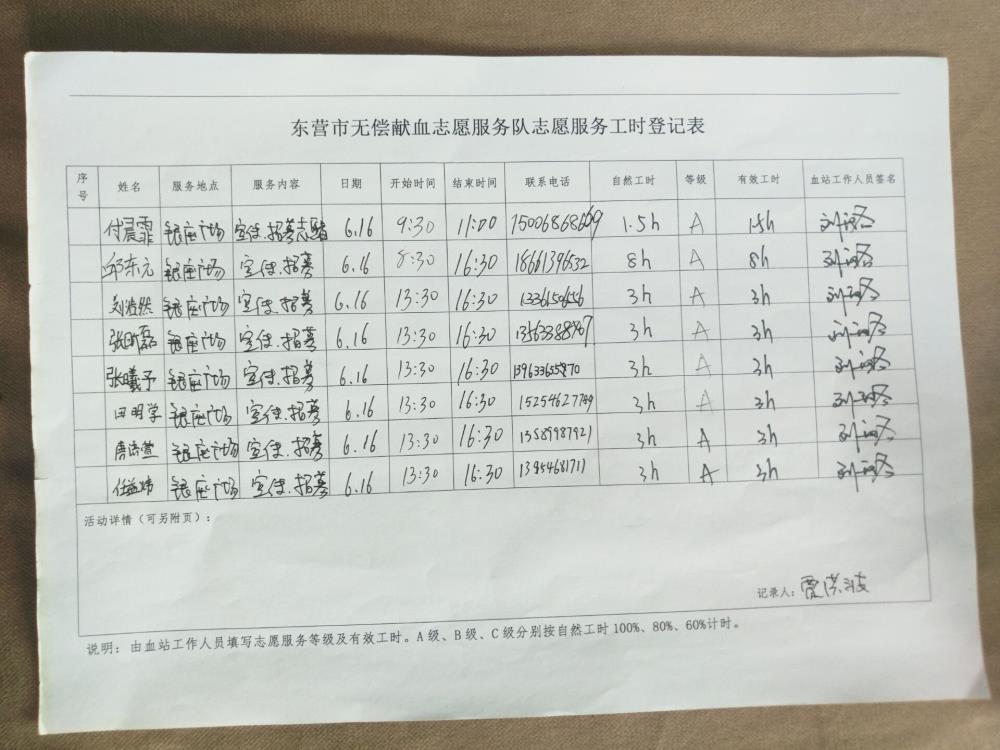 东营市无偿献血志愿服务队志愿服务工时登记表
序号 姓名 服务地点 服务内容 日期 开始时间 结束时间 联系电话 自然工时 等级 有效工时 血站工作人员签名
付晨霏 银座广场 宣传.招募志愿 6.16 9:30 11:00 1.5h A 1.5h
邱东元 银座广场 宣传.招募 6.16 8:30 16:30 18661396832 8h A 8h
刘浩然 银座广场 宣传.招募 6.16 13:30 16:30 3h A 3h
张昕磊 银座广场 宣传.招募 6.16 13:30 16:30 3h A 3h
张曦予 银座广场 宣传.招募 6.16 13:30 16:30 3h A 3h
田明学 银座广场 宣传.招募 6.16 13:30 16:30 15254627789 3h A 3h
银座广场 宣传.招募 6.16 13:30 16:30 13589987921 3h A 3h
任益炜 银座广场 宣传.招募 6.16 13:30 16:30 13954681711 3h A 3h
活动详情（可另附页）：
记录人：贾洪波
说明：由血站工作人员填写志愿服务等级及有效工时。A级、B级、C级分别按自然工时100%、80%、60%计时。